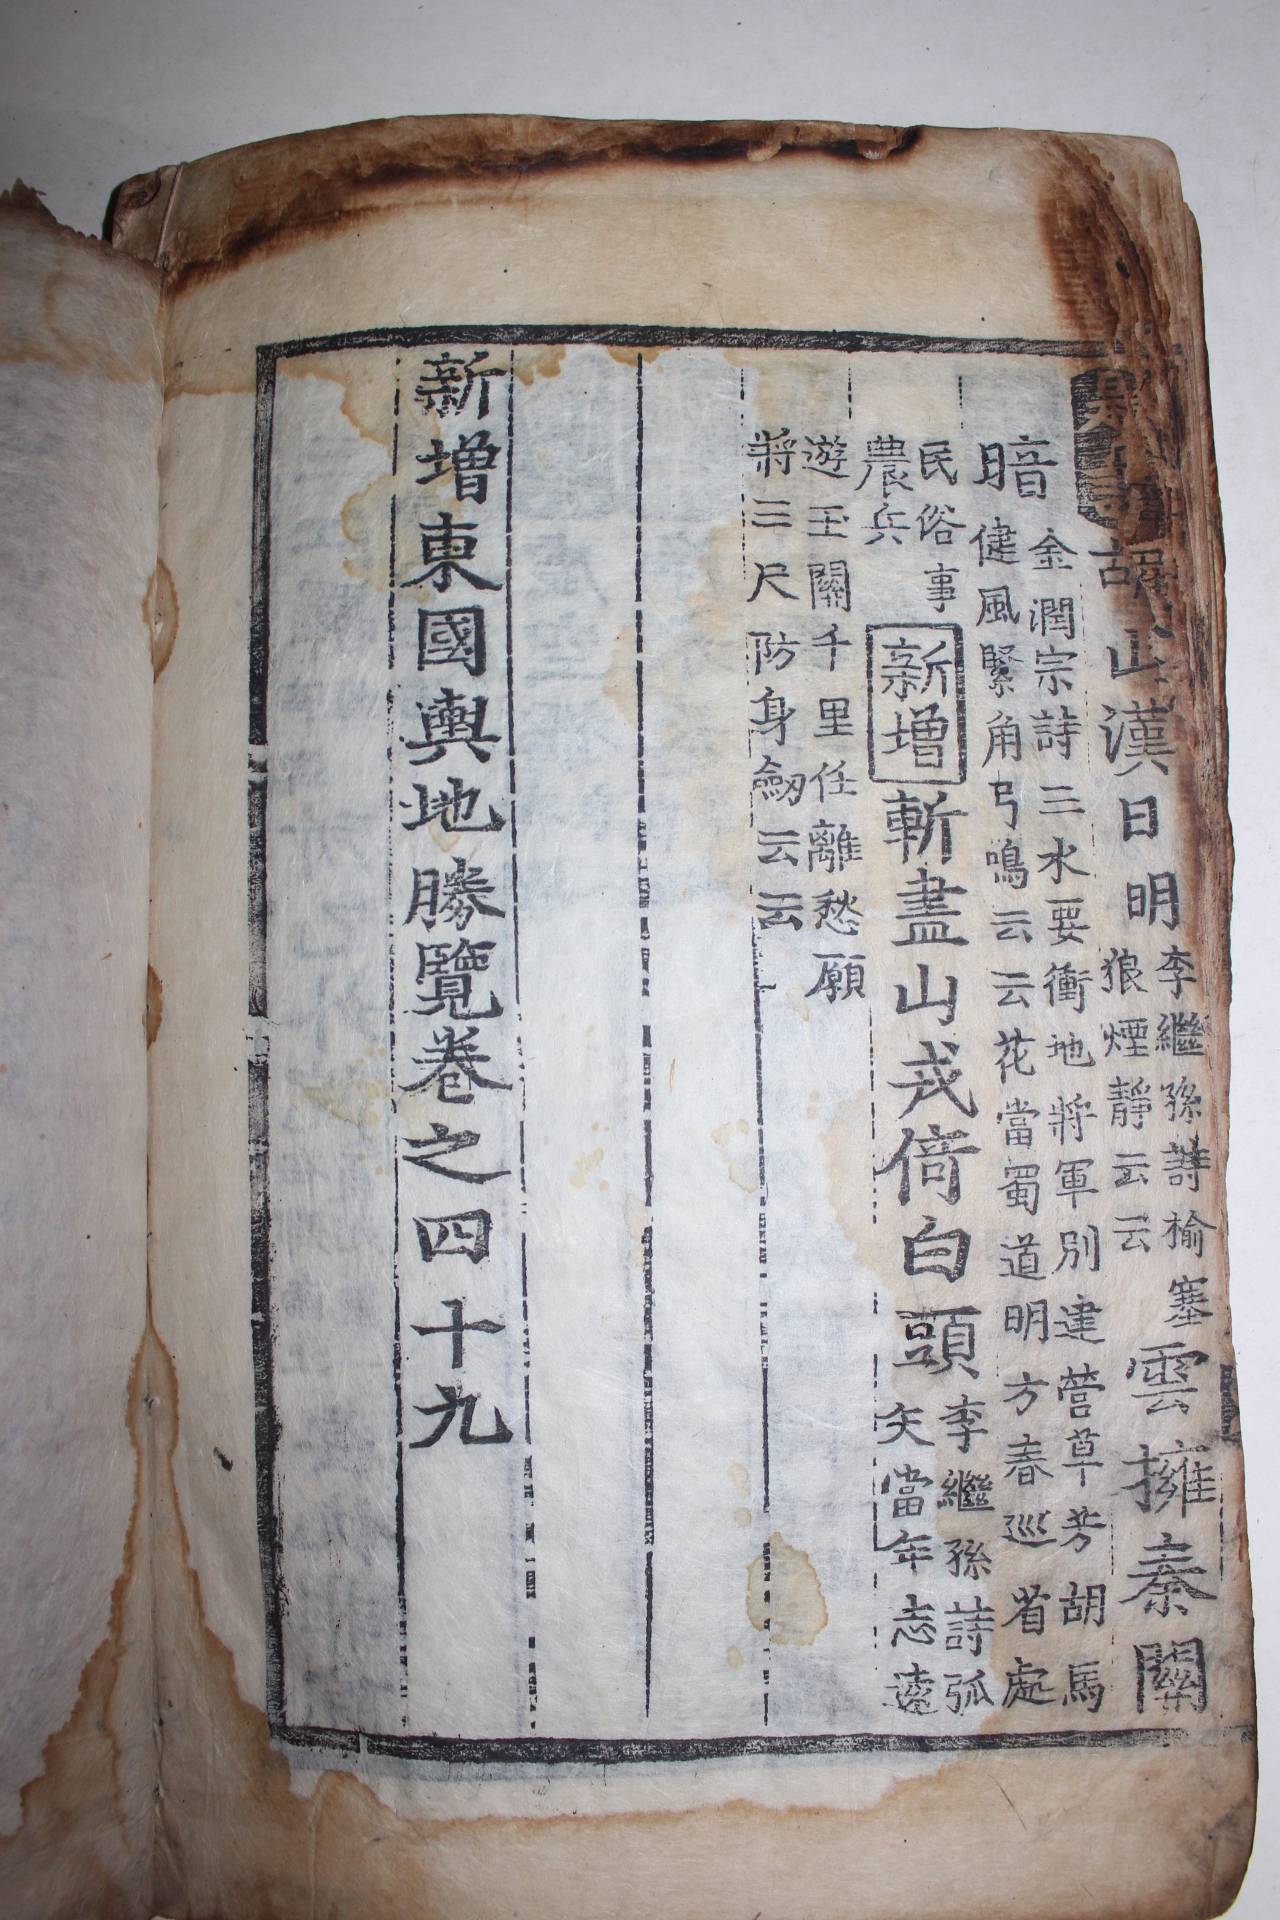 題詠 胡山漢日明 李繼孫詩榆塞狼煙靜云云 雲擁秦關
暗 金潤宗詩三水要衝地將軍別建營草芳胡馬健風緊角弓鳴云云花當蜀道明方春巡省處
民俗事農兵 新增 斬盡山戎倚白頭 李繼孫詩弧矢當年志遠
遊玉關千里任離愁願將三尺防身劒云云
新增東國輿地勝覽卷之四十九